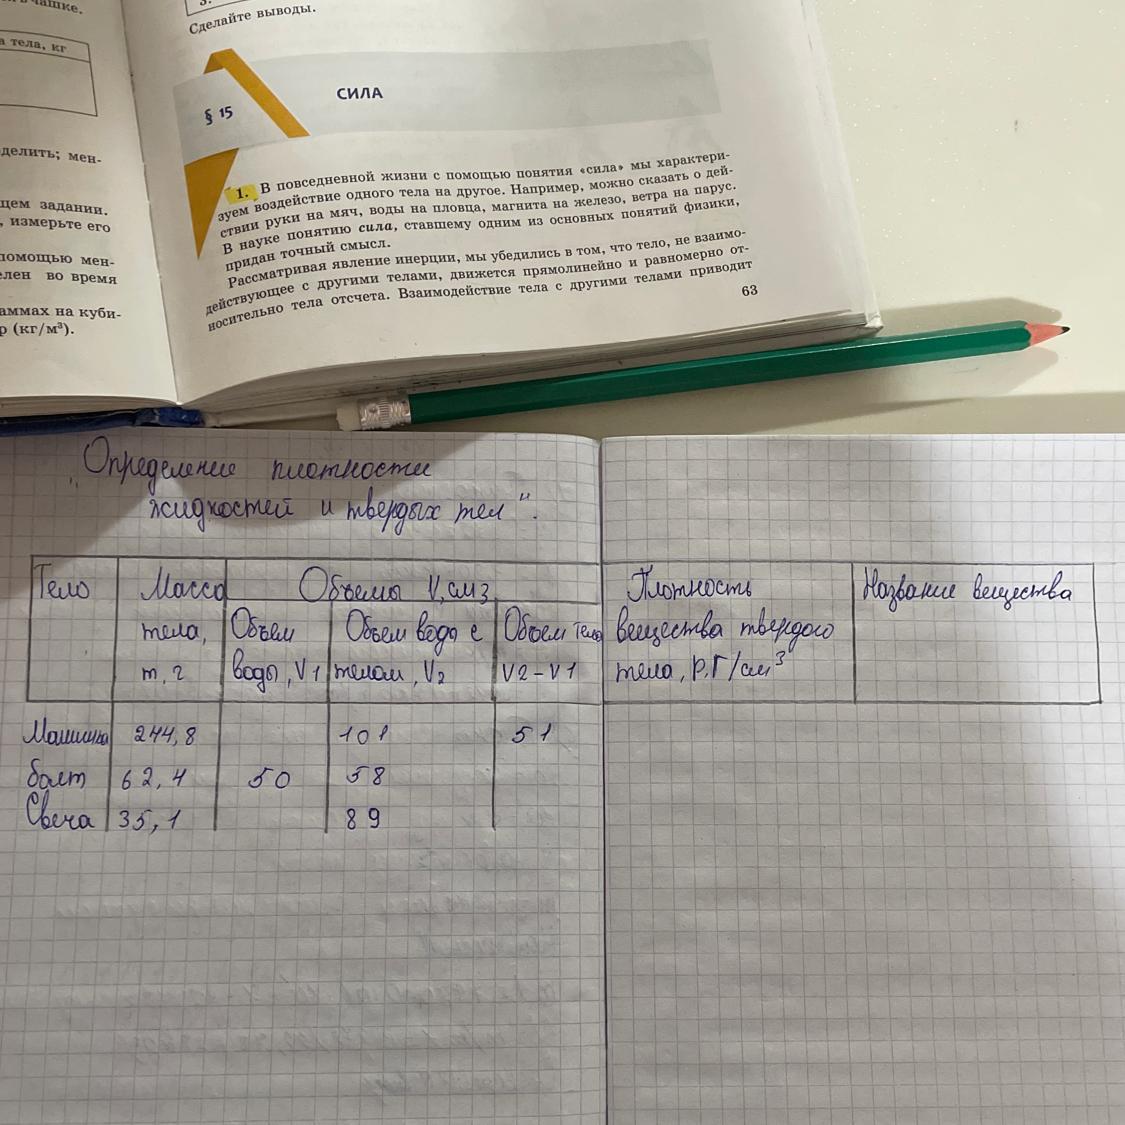 чашке.
а тела, кг
делить; мен-
щем задании.
, измерьте его
помощью мен-
елен во время
аммах на куби-
р (кг/м³).
3.
Сделайте выводы.
§ 15
СИЛА
1. В повседневной жизни с помощью понятия «сила» мы характери-
зуем воздействие одного тела на другое. Например, можно сказать о дей-
ствии руки на мяч, воды на пловца, магнита на железо, ветра на парус.
В науке понятию сила, ставшему одним из основных понятий физики,
придан точный смысл.
Рассматривая явление инерции, мы убедились в том, что тело, не взаимо-
действующее с другими телами, движется прямолинейно и равномерно от-
носительно тела отсчета. Взаимодействие тела с другими телами приводит
63
"Определение плотности
жидкостей и твердых тел".
Тело Масса тела, m, г Объемы V, см3 Плотность вещества твердого тела, р, Г/см³ Название вещества
Объем воды, V1 Объем воды с телом, V2 Объем тела V2-V1
Машинка 244,8 101 51
болт 62,4 50 58
Свеча 35,1 89